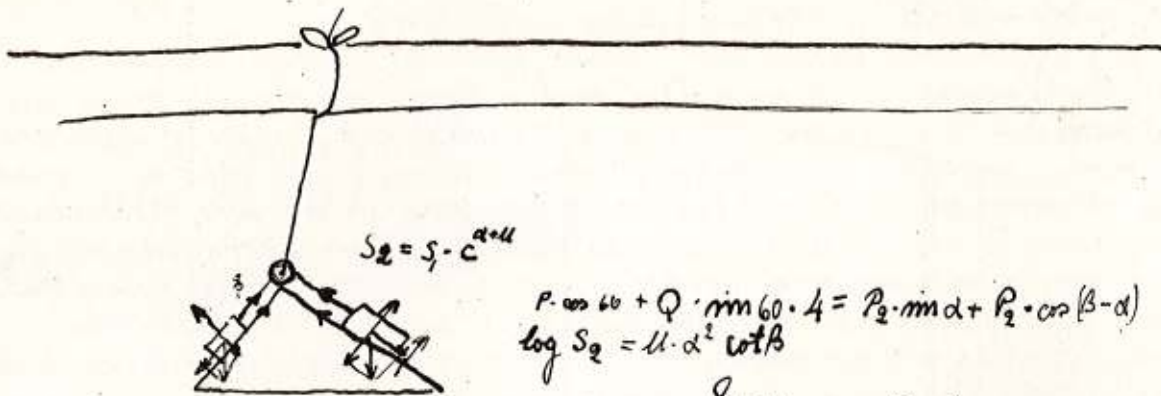 S₂ = S₁ · c^α+μ
P · cos 60 + Q · sin 60 · 4 = P₂ · sin α + P₂ · cos (β-α)
log S₂ = μ · α² cot β